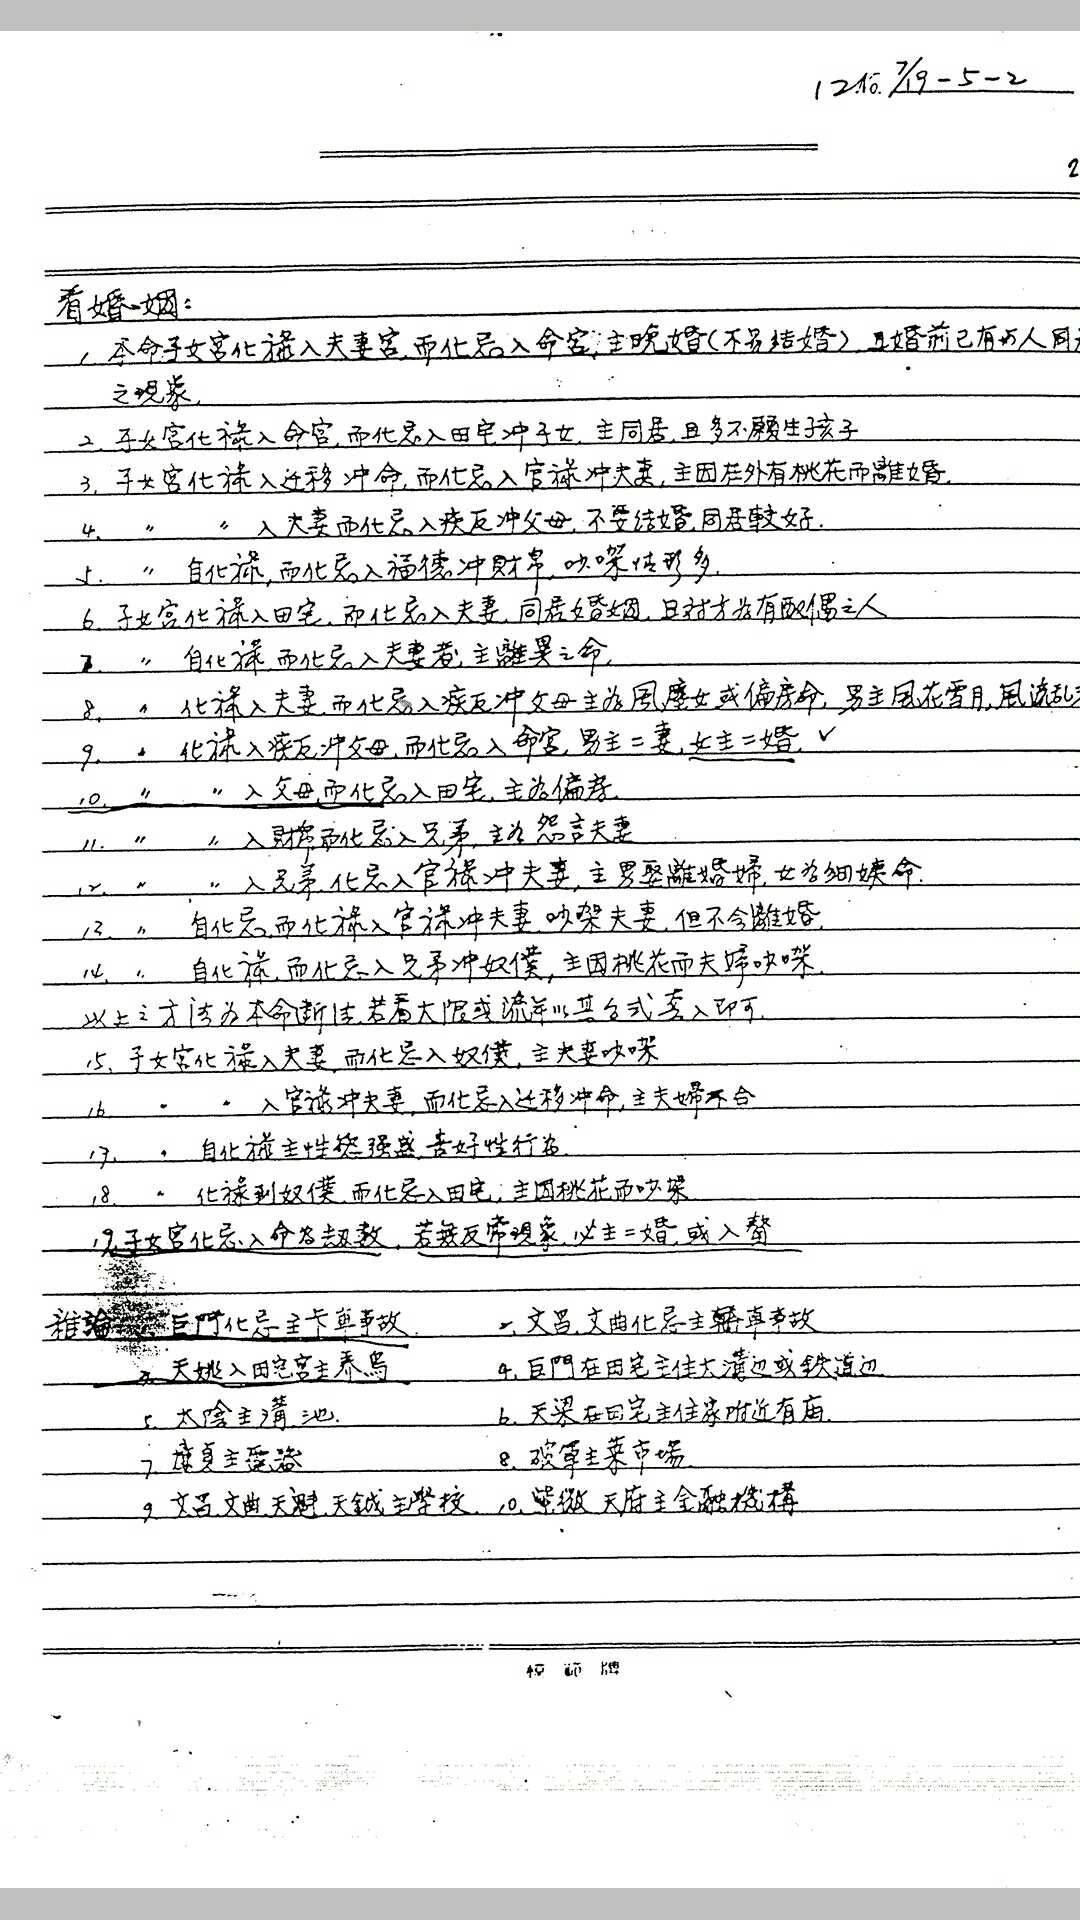 7/19-5-2
2
看婚姻:
1. 本命子女宮化祿入夫妻宮,而化忌入命宮,主晚婚(不易結婚),且婚前已有與人同
之現象.
2. 子女宮化祿入命宮,而化忌入田宅冲子女,主同居,且多不願生孩子
3. 子女宮化祿入迁移冲命,而化忌入官祿冲夫妻,主因在外有桃花而離婚.
4. 〃 〃 入夫妻而化忌入疾厄冲父母,不要結婚,同居較好.
5. 〃 自化祿,而化忌入福德冲財帛,吵架情形多.
6. 子女宮化祿入田宅,而化忌入夫妻,同居婚姻,且对方为有配偶之人
7. 〃 自化祿,而化忌入夫妻者,主離異之命.
8. 〃 化祿入夫妻,而化忌入疾厄冲父母主为風塵女或偏房命,男主風花雪月,風流乱
9. 〃 化祿入疾厄冲父母,而化忌入命宮,男主二妻,女主二婚. ✓
10. 〃 〃 入父母,而化忌入田宅,主为偏房.
11. 〃 〃 入財帛而化忌入兄弟,主为怨言夫妻
12. 〃 〃 入兄弟,化忌入官祿冲夫妻,主男娶離婚婦,女为細姨命.
13. 〃 自化忌,而化祿入官祿冲夫妻,吵架夫妻,但不会離婚.
14. 〃 自化祿,而化忌入兄弟冲奴僕,主因桃花而夫婦吵架.
以上之方法为本命断法,若看大限或流年以其公式套入即可.
15. 子女宮化祿入夫妻,而化忌入奴僕,主夫妻吵架
16. 〃 〃 入官祿冲夫妻,而化忌入迁移冲命,主夫婦不合
17. 〃 自化祿主性慾强盛,喜好性行为.
18. 〃 化祿到奴僕,而化忌入田宅,主因桃花而吵架
19. 子女宮化忌入命为劫數,若無反常現象,必主二婚,或入贅
雜論 巨門化忌主卡車事故. 2. 文昌,文曲化忌主轎車事故
3. 天姚入田宅宮主養鳥 4. 巨門在田宅主住大溝边或鉄道边
5. 太陰主溝,池. 6. 天梁在田宅主住家附近有庙.
7. 8. 破軍主菜市場.
9. 文昌,文曲,天魁,天鉞主學校. 10. 紫微,天府主金融機構
模範牌